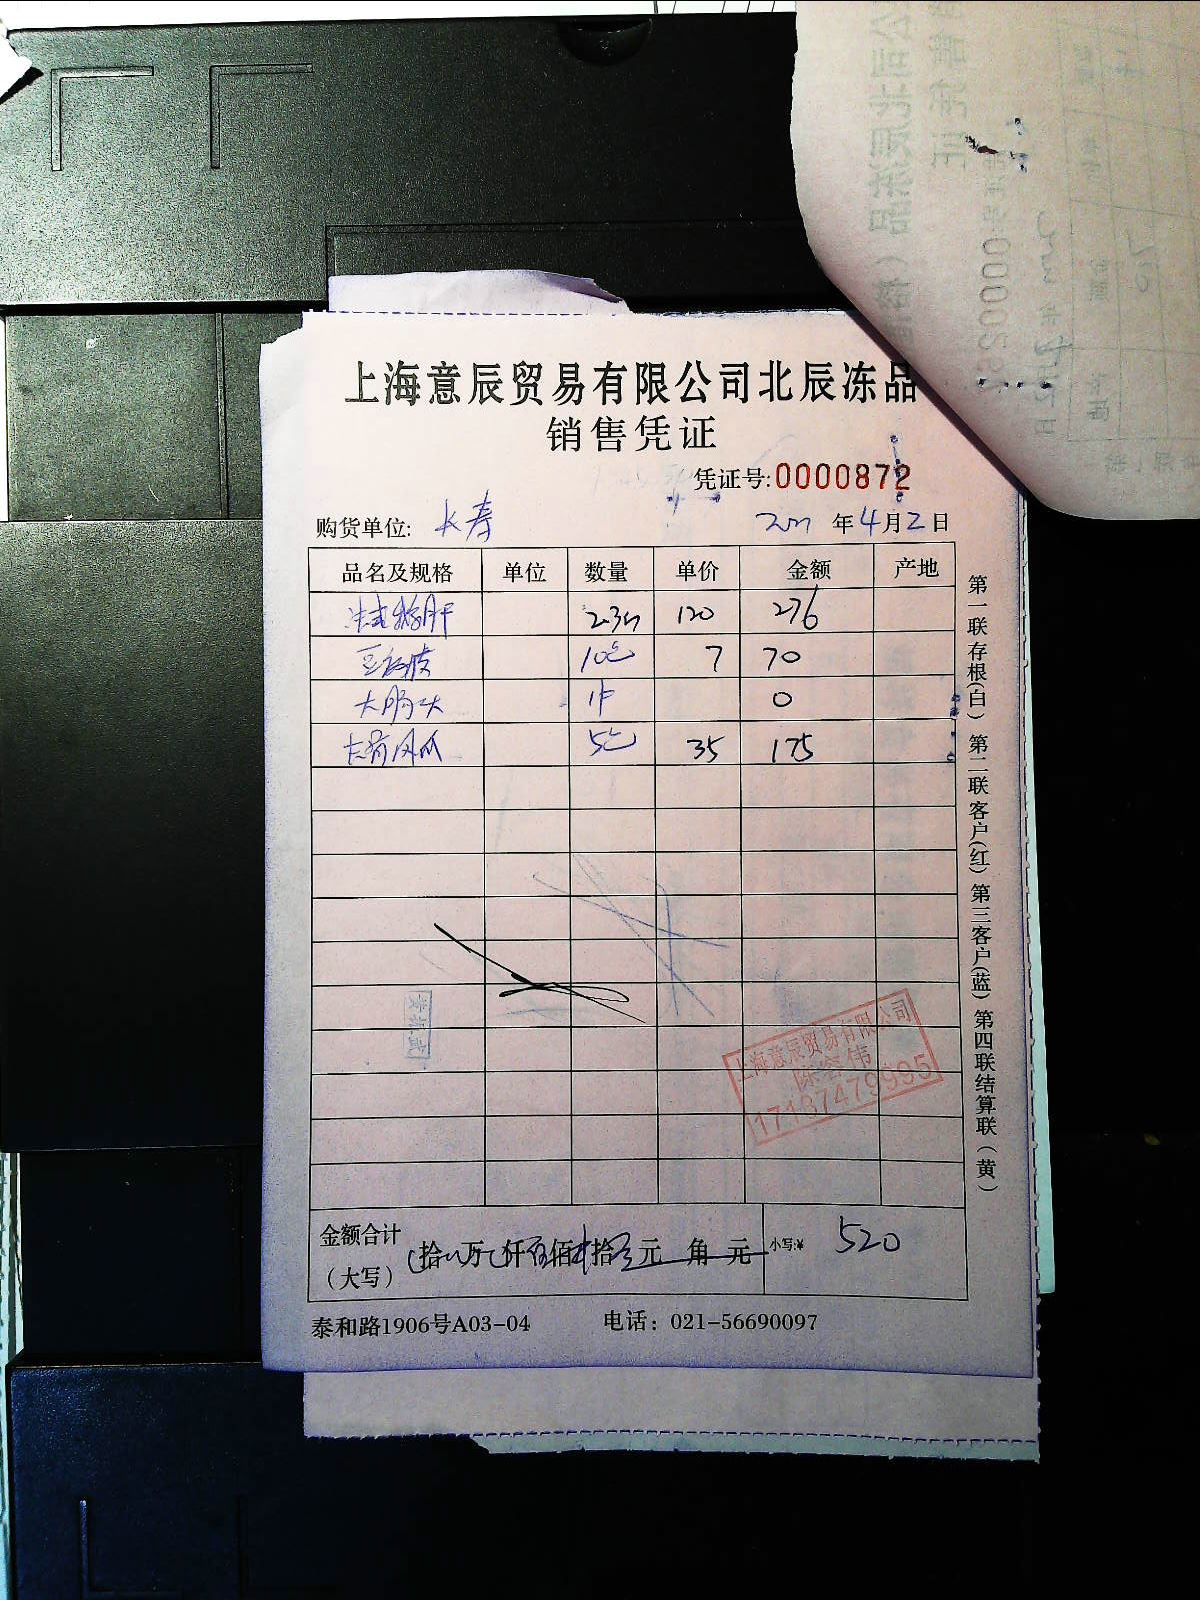 上海意辰贸易有限公司北辰冻品
销售凭证
凭证号:0000872
购货单位: 长寿 2021 年 4 月 2 日
品名及规格 单位 数量 单价 金额 产地
法式鹅肝 2.3 120 276
豆 皮 10包 7 70
大肠头 1件 0
去骨凤爪 5包 35 175
上海意辰贸易有限公司
陈容伟
17137479995
金额合计
(大写) 拾 万 仟 伍 佰 拾 元 角 元 小写:¥ 520
泰和路1906号A03-04 电话: 021-56690097
第一联存根(白) 第二联客户(红) 第三客户(蓝) 第四联结算联(黄)